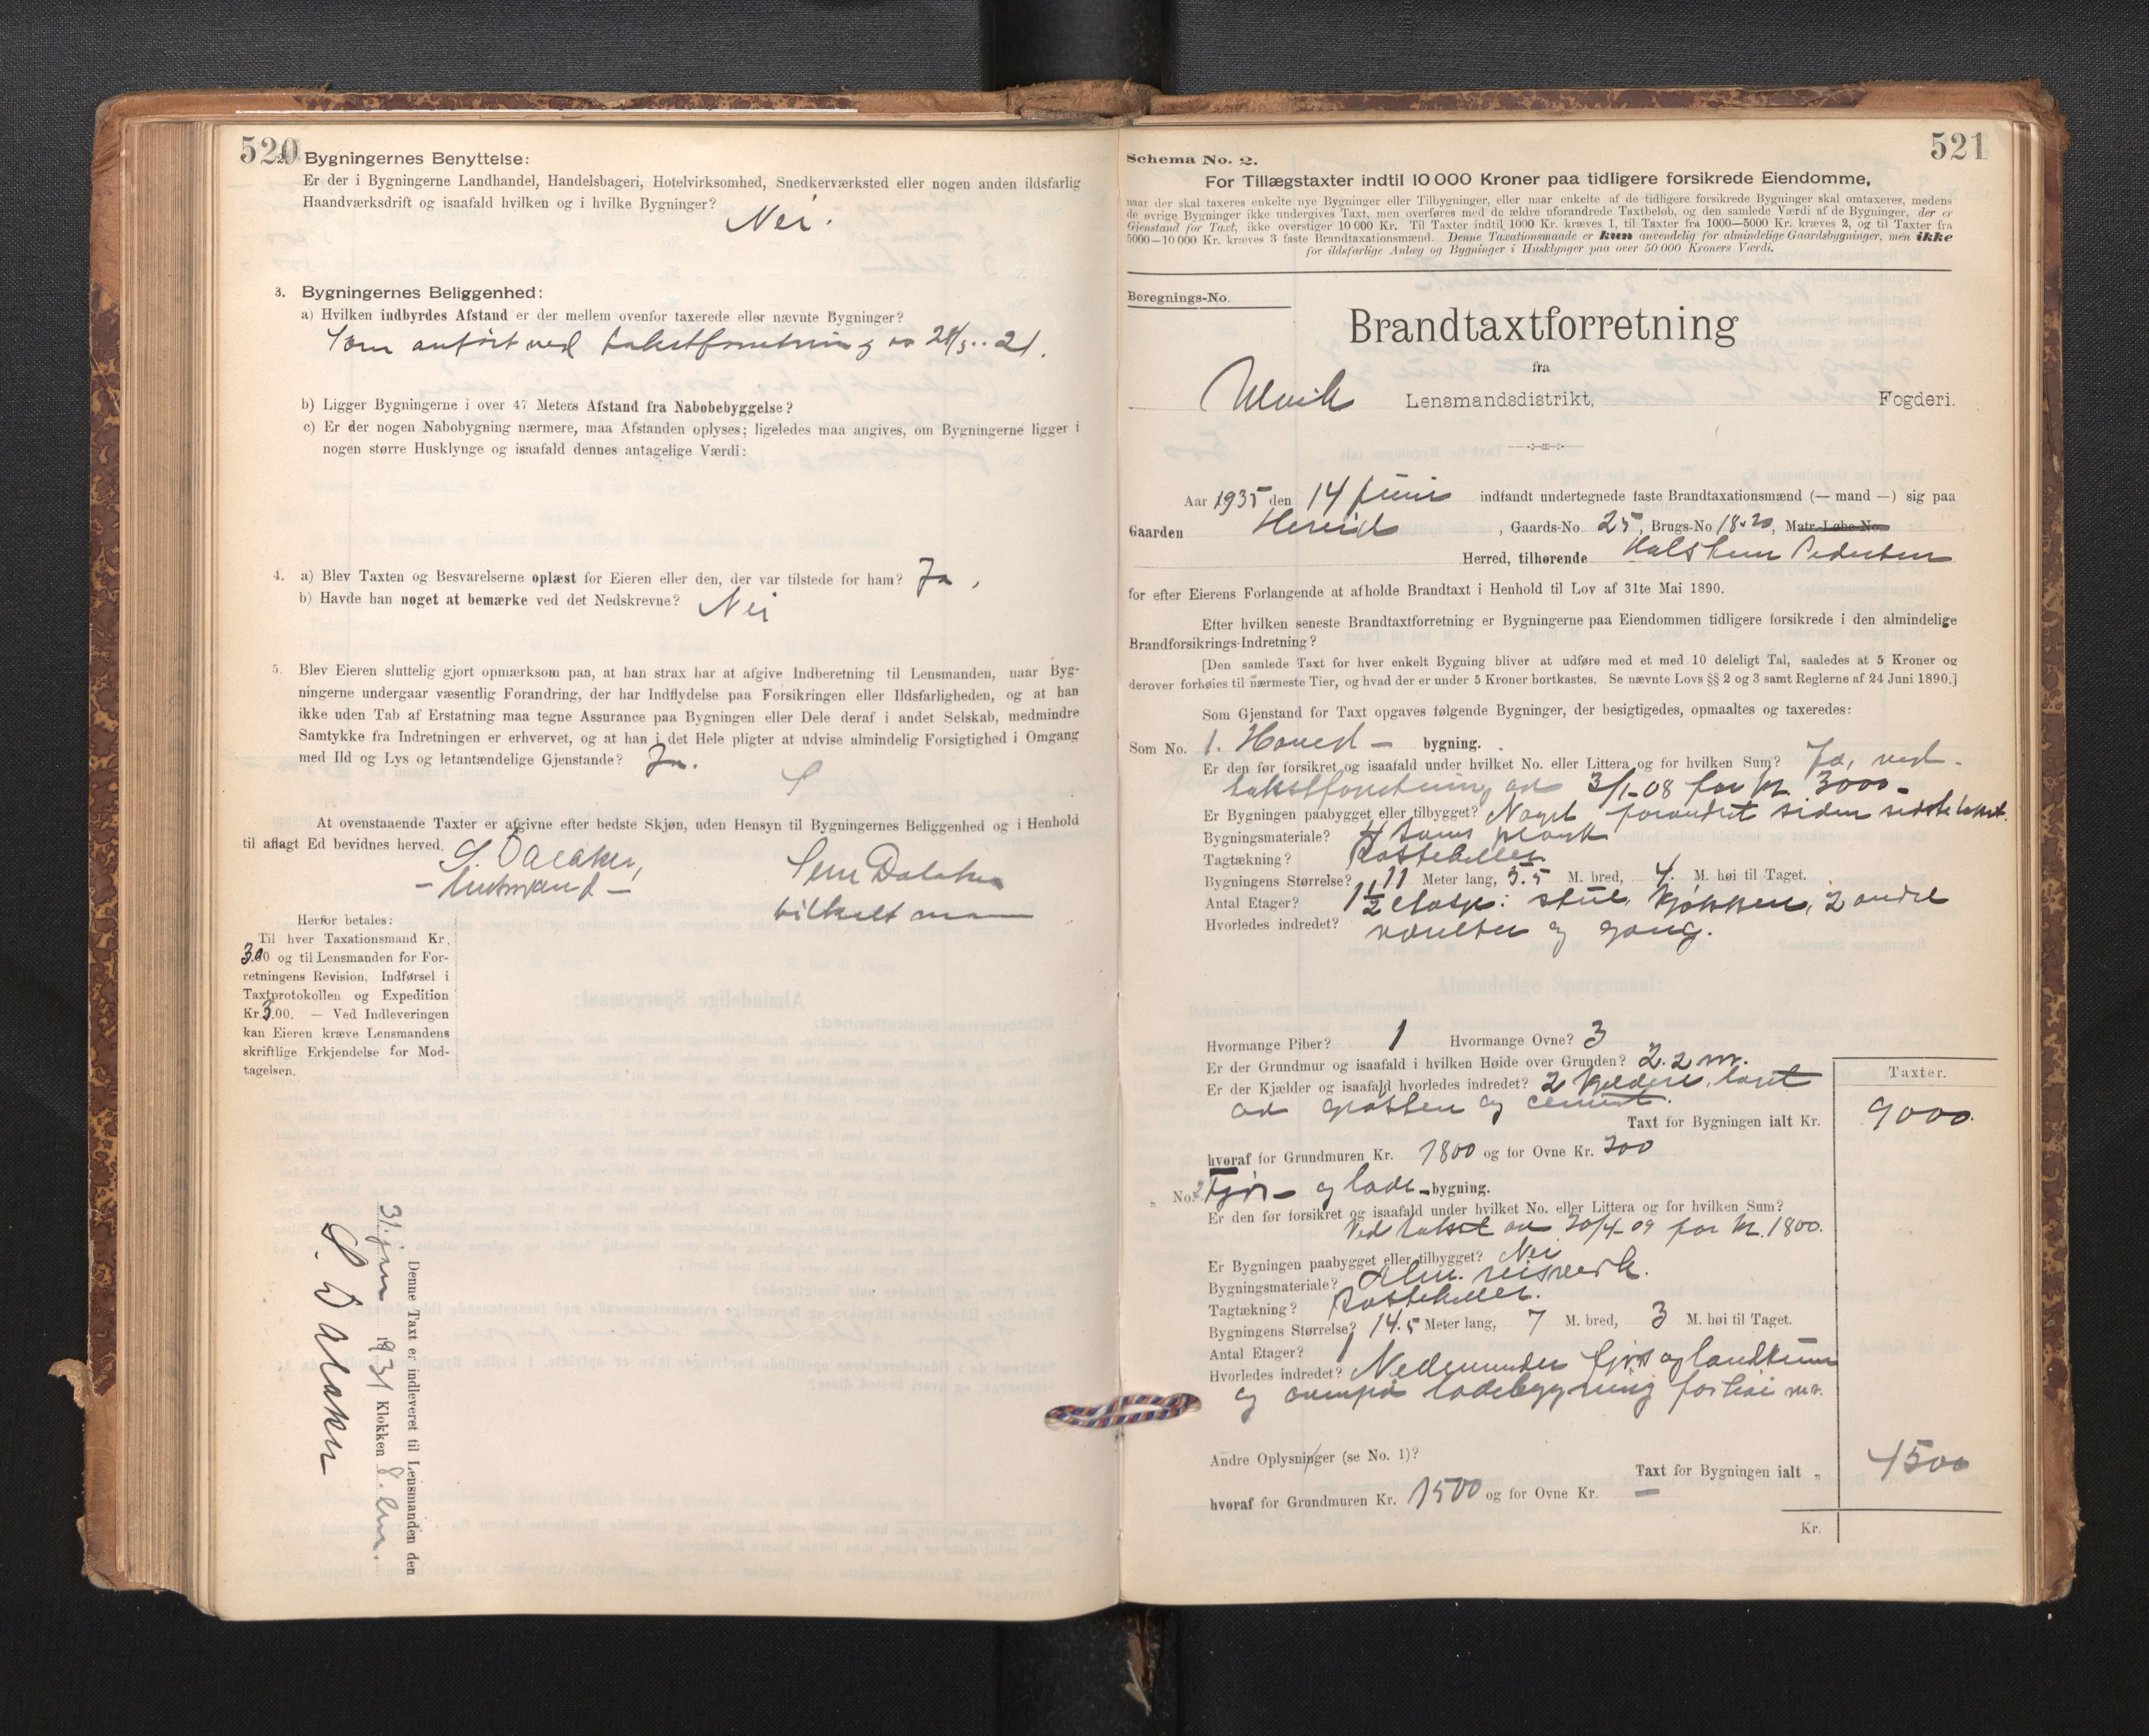 520
2. Bygningernes Benyttelse:
Er der i Bygningerne Landhandel, Handelsbageri, Hotelvirksomhed, Snedkerværksted eller nogen anden ildsfarlig
Haandværksdrift og isaafald hvilken og i hvilke Bygninger?
Nei.
3. Bygningernes Beliggenhed:
a) Hvilken indbyrdes Afstand er der mellem ovenfor taxerede eller nævnte Bygninger?
Som anført ved takstforretning av 28/5.. 21.
b) Ligger Bygningerne i over 47 Meters Afstand fra Nabobebyggelse?
c) Er der nogen Nabobygning nærmere, maa Afstanden oplyses; ligeledes maa angives, om Bygningerne ligger i
nogen større Husklynge og isaafald dennes antagelige Værdi:
4. a) Blev Taxten og Besvarelserne oplæst for Eieren eller den, der var tilstede for ham? Ja,
b) Havde han noget at bemærke ved det Nedskrevne? Nei
5. Blev Eieren sluttelig gjort opmærksom paa, at han strax har at afgive Indberetning til Lensmanden, naar Byg-
ningerne undergaar væsentlig Forandring, der har Indflydelse paa Forsikringen eller Ildsfarligheden, og at han
ikke uden Tab af Erstatning maa tegne Assurance paa Bygningen eller Dele deraf i andet Selskab, medmindre
Samtykke fra Indretningen er erhvervet, og at han i det Hele pligter at udvise almindelig Forsigtighed i Omgang
med Ild og Lys og letantændelige Gjenstande? Ja.
At ovenstaaende Taxter er afgivne efter bedste Skjøn, uden Hensyn til Bygningernes Beliggenhed og i Henhold
til aflagt Ed bevidnes herved.
S. Dalaker,
- lensmand -
Dalaker
tilkalt mann
Herfor betales:
Til hver Taxationsmand Kr.
3.00 og til Lensmanden for For-
retningens Revision, Indførsel i
Taxtprotokollen og Expedition
Kr. 3.00. — Ved Indleveringen
kan Eieren kræve Lensmandens
skriftlige Erkjendelse for Mod-
tagelsen.
Denne Taxt er indleveret til Lensmanden den
31. 1931 Klokken 8
S. Dalaker
521
Schema No. 2.
For Tillægstaxter indtil 10 000 Kroner paa tidligere forsikrede Eiendomme,
naar der skal taxeres enkelte nye Bygninger eller Tilbygninger, eller naar enkelte af de tidligere forsikrede Bygninger skal omtaxeres, medens
de øvrige Bygninger ikke undergives Taxt, men overføres med de ældre uforandrede Taxtbeløb, og den samlede Værdi af de Bygninger, der er
Gjenstand for Taxt, ikke overstiger 10 000 Kr. Til Taxter indtil 1000 Kr. kræves 1, til Taxter fra 1000—5000 Kr. kræves 2, og til Taxter fra
5000—10 000 Kr. kræves 3 faste Brandtaxationsmænd. Denne Taxationsmaade er kun anvendelig for almindelige Gaardsbygninger, men ikke
for ildsfarlige Anlæg og Bygninger i Husklynger paa over 50 000 Kroners Værdi.
Beregnings-No.
Brandtaxtforretning
fra
Ulvik Lensmandsdistrikt, Fogderi.
Aar 1935 den 14 juni indfandt undertegnede faste Brandtaxationsmænd (— mand —) sig paa
Gaarden Hereid, Gaards-No 25, Brugs-No 18.20, Matr.-Løbe-No.
Herred, tilhørende Pedersen
for efter Eierens Forlangende at afholde Brandtaxt i Henhold til Lov af 31te Mai 1890.
Efter hvilken seneste Brandtaxtforretning er Bygningerne paa Eiendommen tidligere forsikrede i den almindelige
Brandforsikrings-Indretning?
[Den samlede Taxt for hver enkelt Bygning bliver at udføre med et med 10 deleligt Tal, saaledes at 5 Kroner og
derover forhøies til nærmeste Tier, og hvad der er under 5 Kroner bortkastes. Se nævnte Lovs §§ 2 og 3 samt Reglerne af 24 Juni 1890.]
Som Gjenstand for Taxt opgaves følgende Bygninger, der besigtigedes, opmaaltes og taxeredes:
Som No. 1. Hoved- bygning.
Er den før forsikret og isaafald under hvilket No. eller Littera og for hvilken Sum? Ja, ved
takstforretning av 3/1-08 for kr. 3000-
Er Bygningen paabygget eller tilbygget? Noget forandret siden sidste takst.
Bygningsmateriale? 4 toms plank
Tagtækning? Rasteheller.
Bygningens Størrelse? 11 Meter lang, 5.5 M. bred, 4. M. høi til Taget.
Antal Etager? 1 1/2 etasje: stue, kjøkken, 2 andre
Hvorledes indredet? værelser og gang.
Hvormange Piber? 1 Hvormange Ovne? 3
Er der Grundmur og isaafald i hvilken Høide over Grunden? 2.2 m.
Er der Kjælder og isaafald hvorledes indredet? 2 kjeldere,
av gråsten og cement.
Taxter.
Taxt for Bygningen ialt Kr. 9000.
hvoraf for Grundmuren Kr. 1800 og for Ovne Kr. 200
" No. 2 Fjøs- og lade-bygning.
Er den før forsikret og isaafald under hvilket No. eller Littera og for hvilken Sum?
Ved takst av 20/4-09 for kr. 1800.
Er Bygningen paabygget eller tilbygget? Nei
Bygningsmateriale? Alm. reisverk.
Tagtækning? Rasteheller.
Bygningens Størrelse? 14.5 Meter lang, 7 M. bred, 3 M. høi til Taget.
Antal Etager? 1
Hvorledes indredet? Nedenunder fjøs og
og ovenpå ladebygning for høi m.v.
Andre Oplysninger (se No. 1)?
Taxt for Bygningen ialt " 4500
hvoraf for Grundmuren Kr. 1500 og for Ovne Kr. —
Kr.